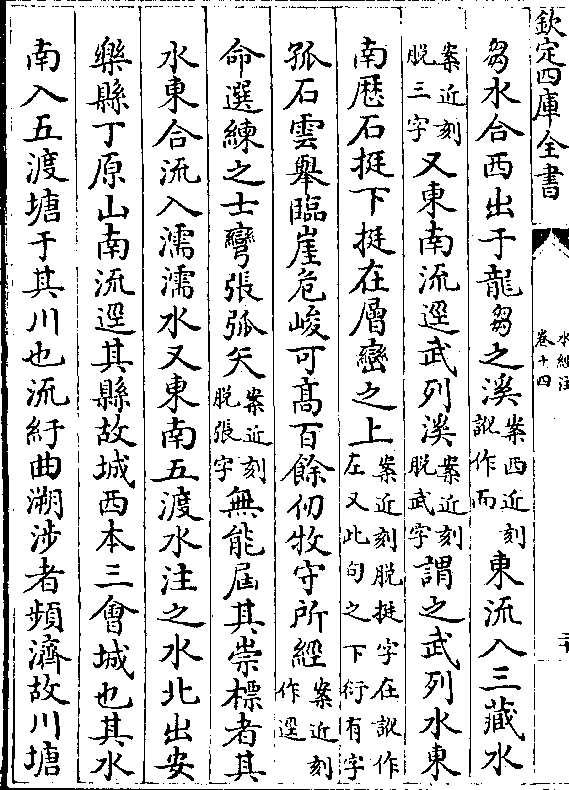 欽定四庫全書
水經注
卷十四
芻水合西出于龍芻之溪案西近刻訛作而東流入三藏水
案近刻脫三字又東南流逕武列溪案近刻脫武字謂之武列水東
南歴石挺下挺在層巒之上案近刻脫挺字在訛作左又此句之下衍有字
孤石雲舉臨崖危峻可髙百餘仞牧守所經案近刻作逕
命選練之士彎張弧矢案近刻脫張字無能屆其崇標者其
水東合流入濡濡水又東南五渡水注之水北出安
樂縣丁原山南流逕其縣故城西本三會城也其水
南入五渡塘于其川也流紆曲溯涉者頻濟故川塘